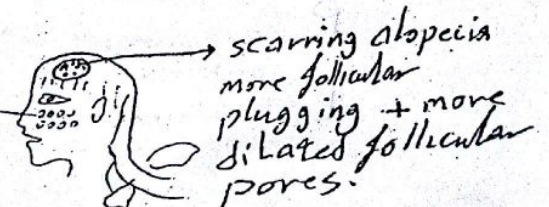 scarring alopecia
more follicular
plugging + more
dilated follicular
pores.